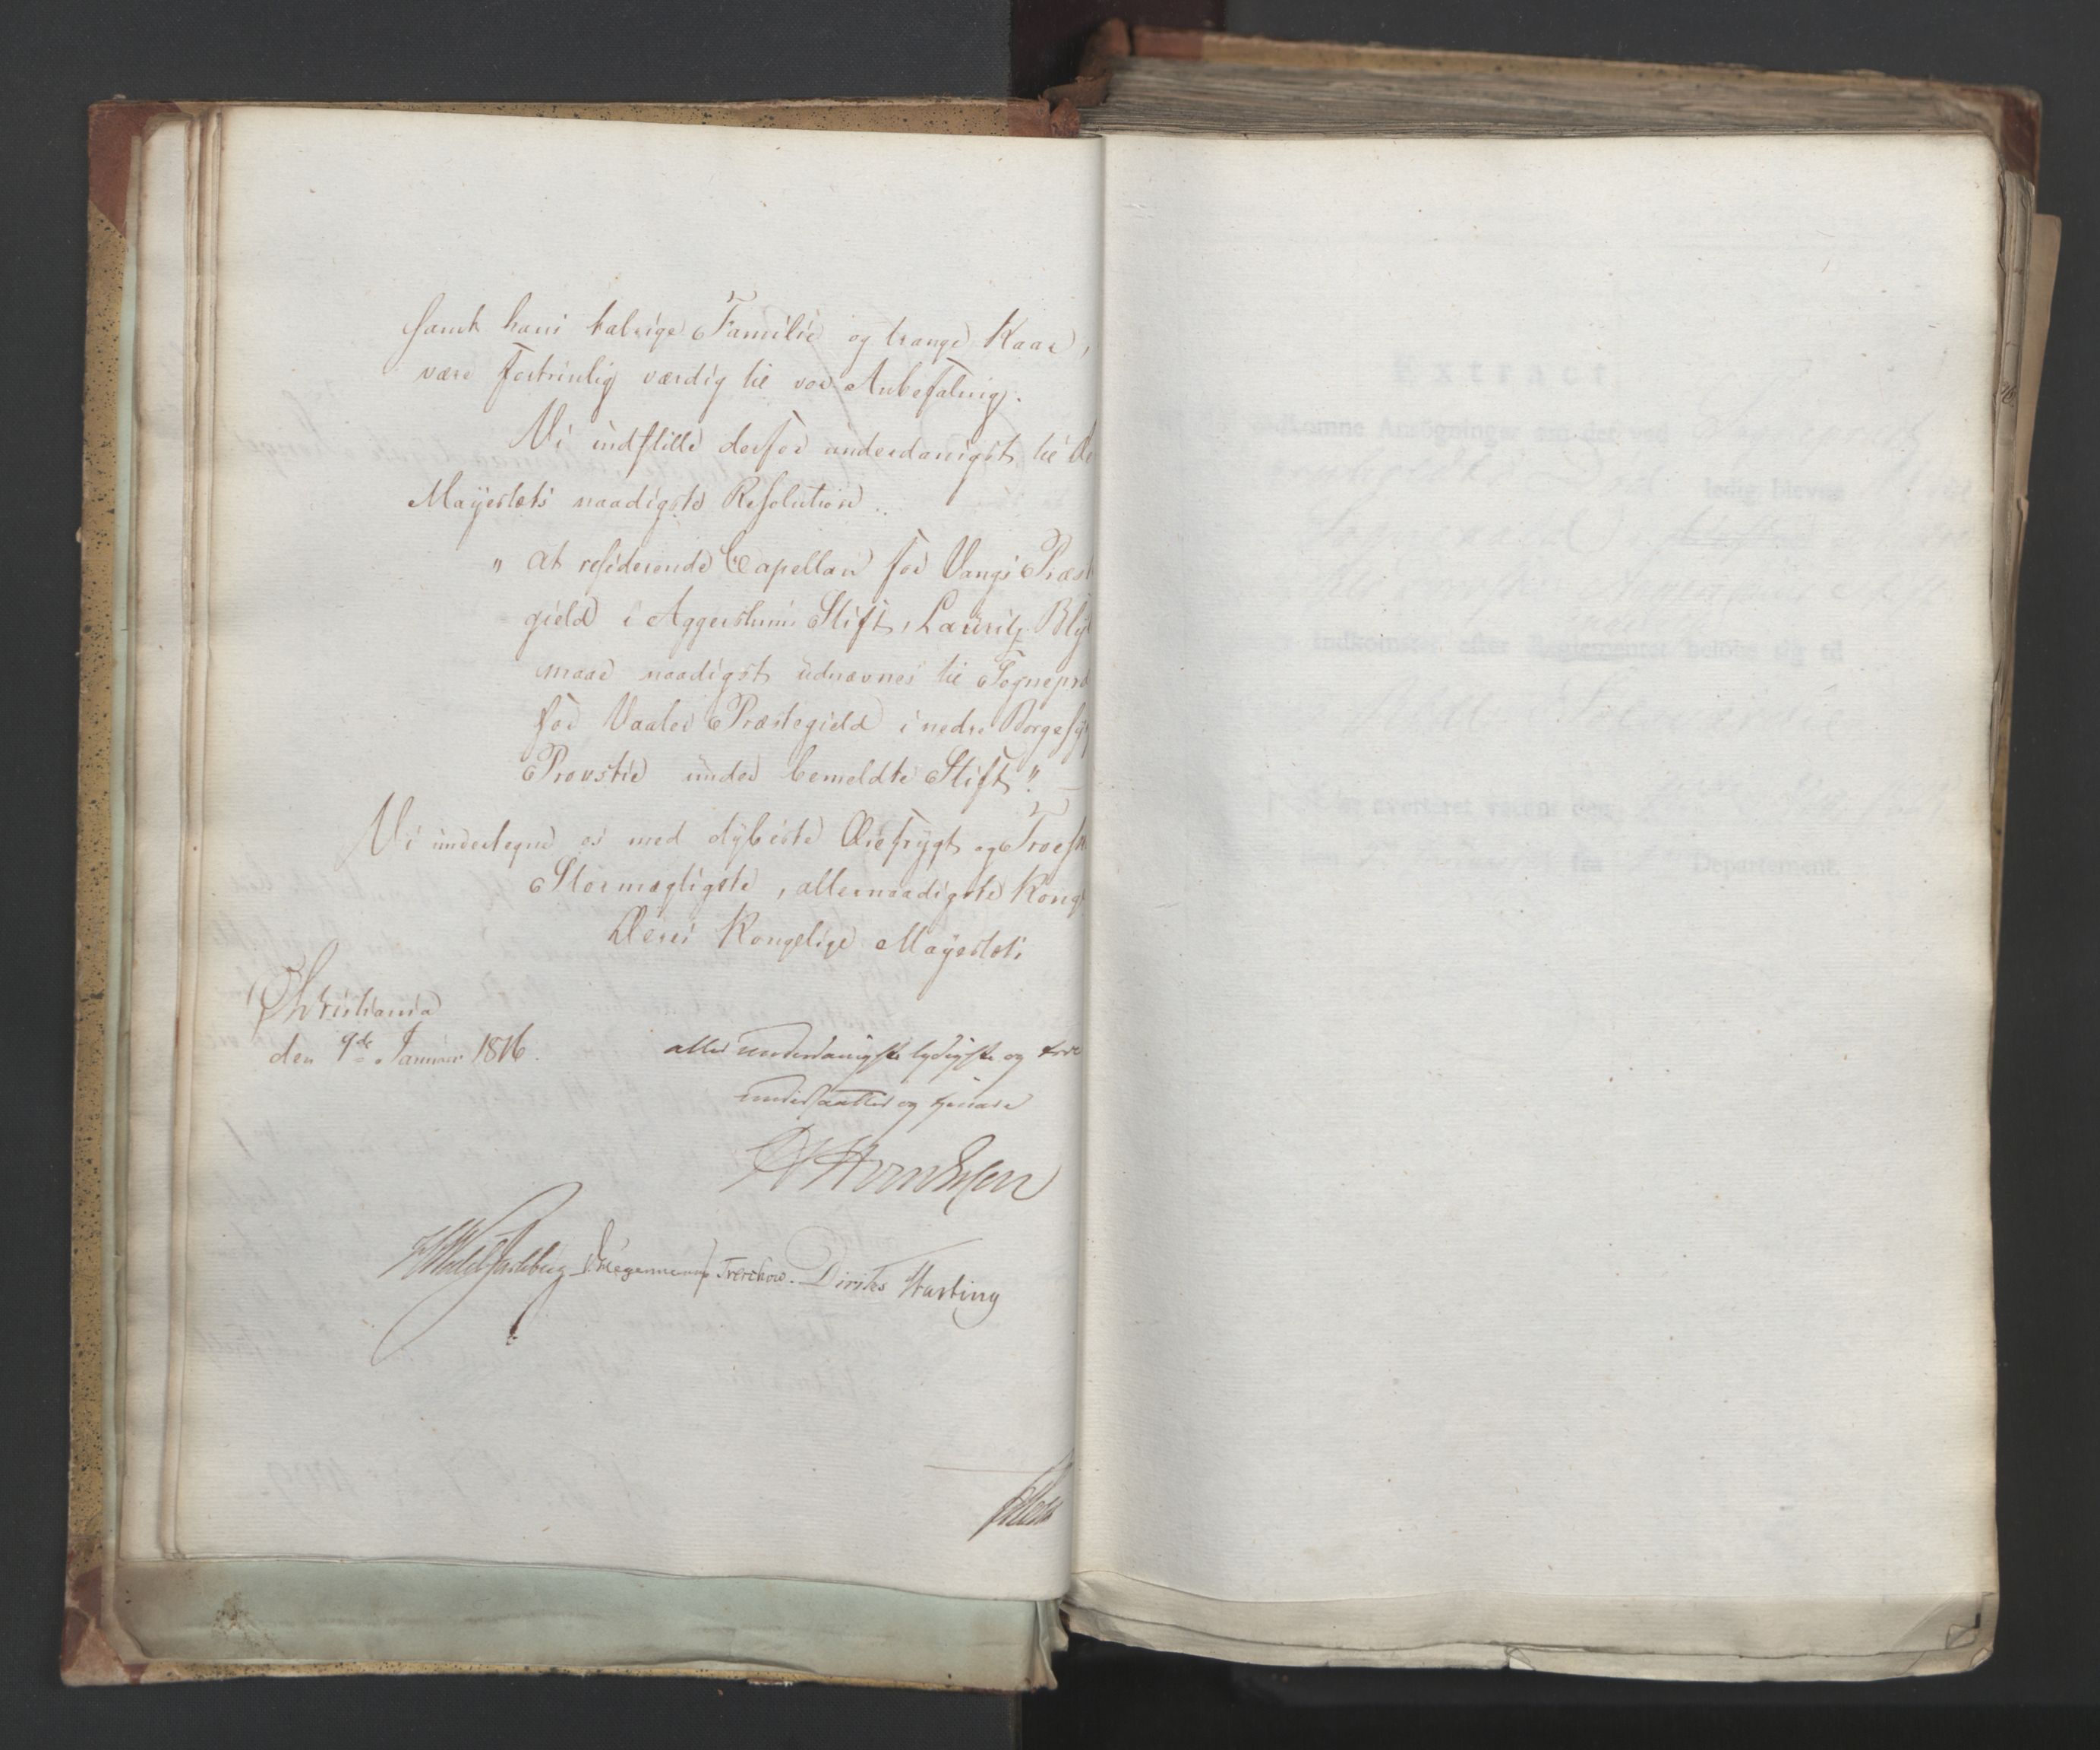 samt hans talrige Familie og trange Kaar,
være fortrinlig værdig til vor Anbefaling.
Vi indstille derfor underdanigst til De
Mayestæts naadigste Resolution
" at residerende Capellan for Vangs Præst
gield i Aggershuus Stift, Lauritz Bly
maae naadigst udnævnes til Sognepræ
for Vaaler Præstegield i nedre Borgesy
Provstie under bemeldte Stift."
Vi undertegne os med dybeste Ærefrygt og Troesk
Stormægtigste, allernaadigste Kong
Deres Kongelige Mayestæts
Christiania
den 9de Januar 1816.
aller underdanigste lydigste og troe
undersaatter og tjenere
Wedel Jarlsberg Hegermann Treschow. Diriks Hasting
Extract
indkomne Ansögninger om det ved Sognepræst
ledig blevne
Indkomster efter Reglementet belöbe sig til
fra Departement.